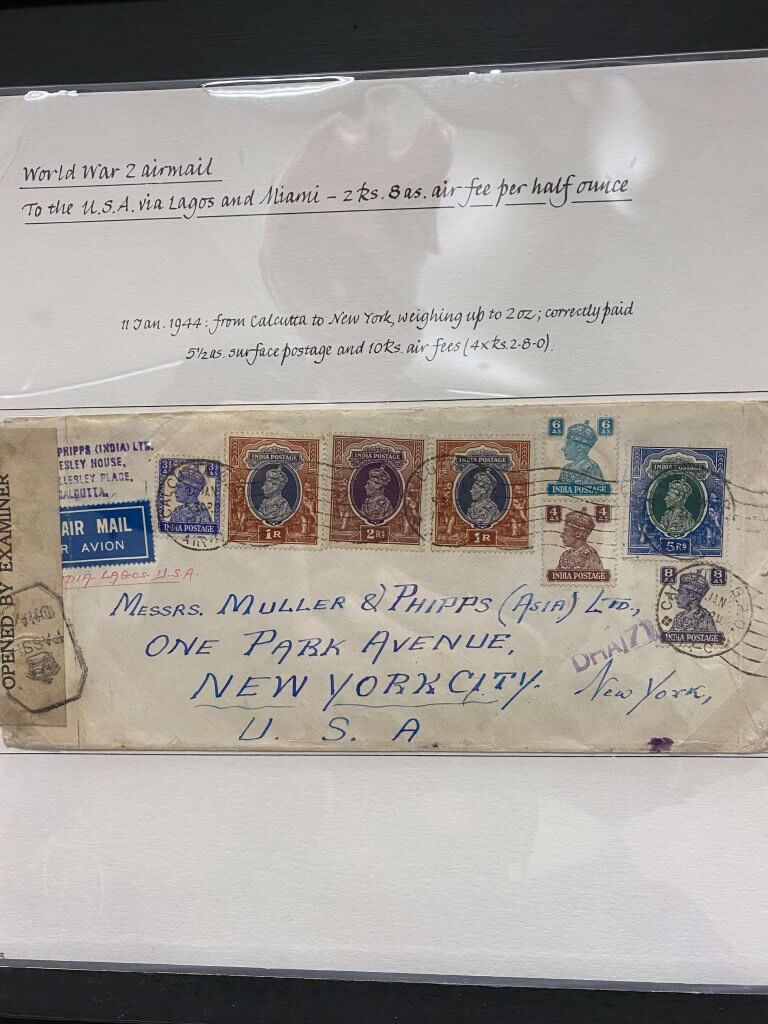 World War 2 airmail
To the U.S.A. via Lagos and Miami – 2 Rs. 8 as. air fee per half ounce
11 Jan. 1944: from Calcutta to New York, weighing up to 2 oz; correctly paid
5½ as. surface postage and 10 Rs. air fees (4 x Rs. 2-8-0).
PHIPPS (INDIA) LTD.
ESLEY HOUSE,
LLESLEY PLACE,
CALCUTTA.
AIR MAIL
R AVION
DIA-LAGOS-U.S.A.
OPENED BY EXAMINER
3½ AS 3½ AS
INDIA POSTAGE
INDIA POSTAGE
1R
INDIA POSTAGE
2RS
INDIA POSTAGE
1R
6 AS 6 AS
INDIA POSTAGE
4 AS 4 AS
INDIA POSTAGE
INDIA POSTAGE
5RS
8 AS 8 AS
INDIA POSTAGE
MESSRS. MULLER & PHIPPS (ASIA) LTD.,
ONE PARK AVENUE,
NEW YORK CITY. New York,
U. S. A
DHA/71